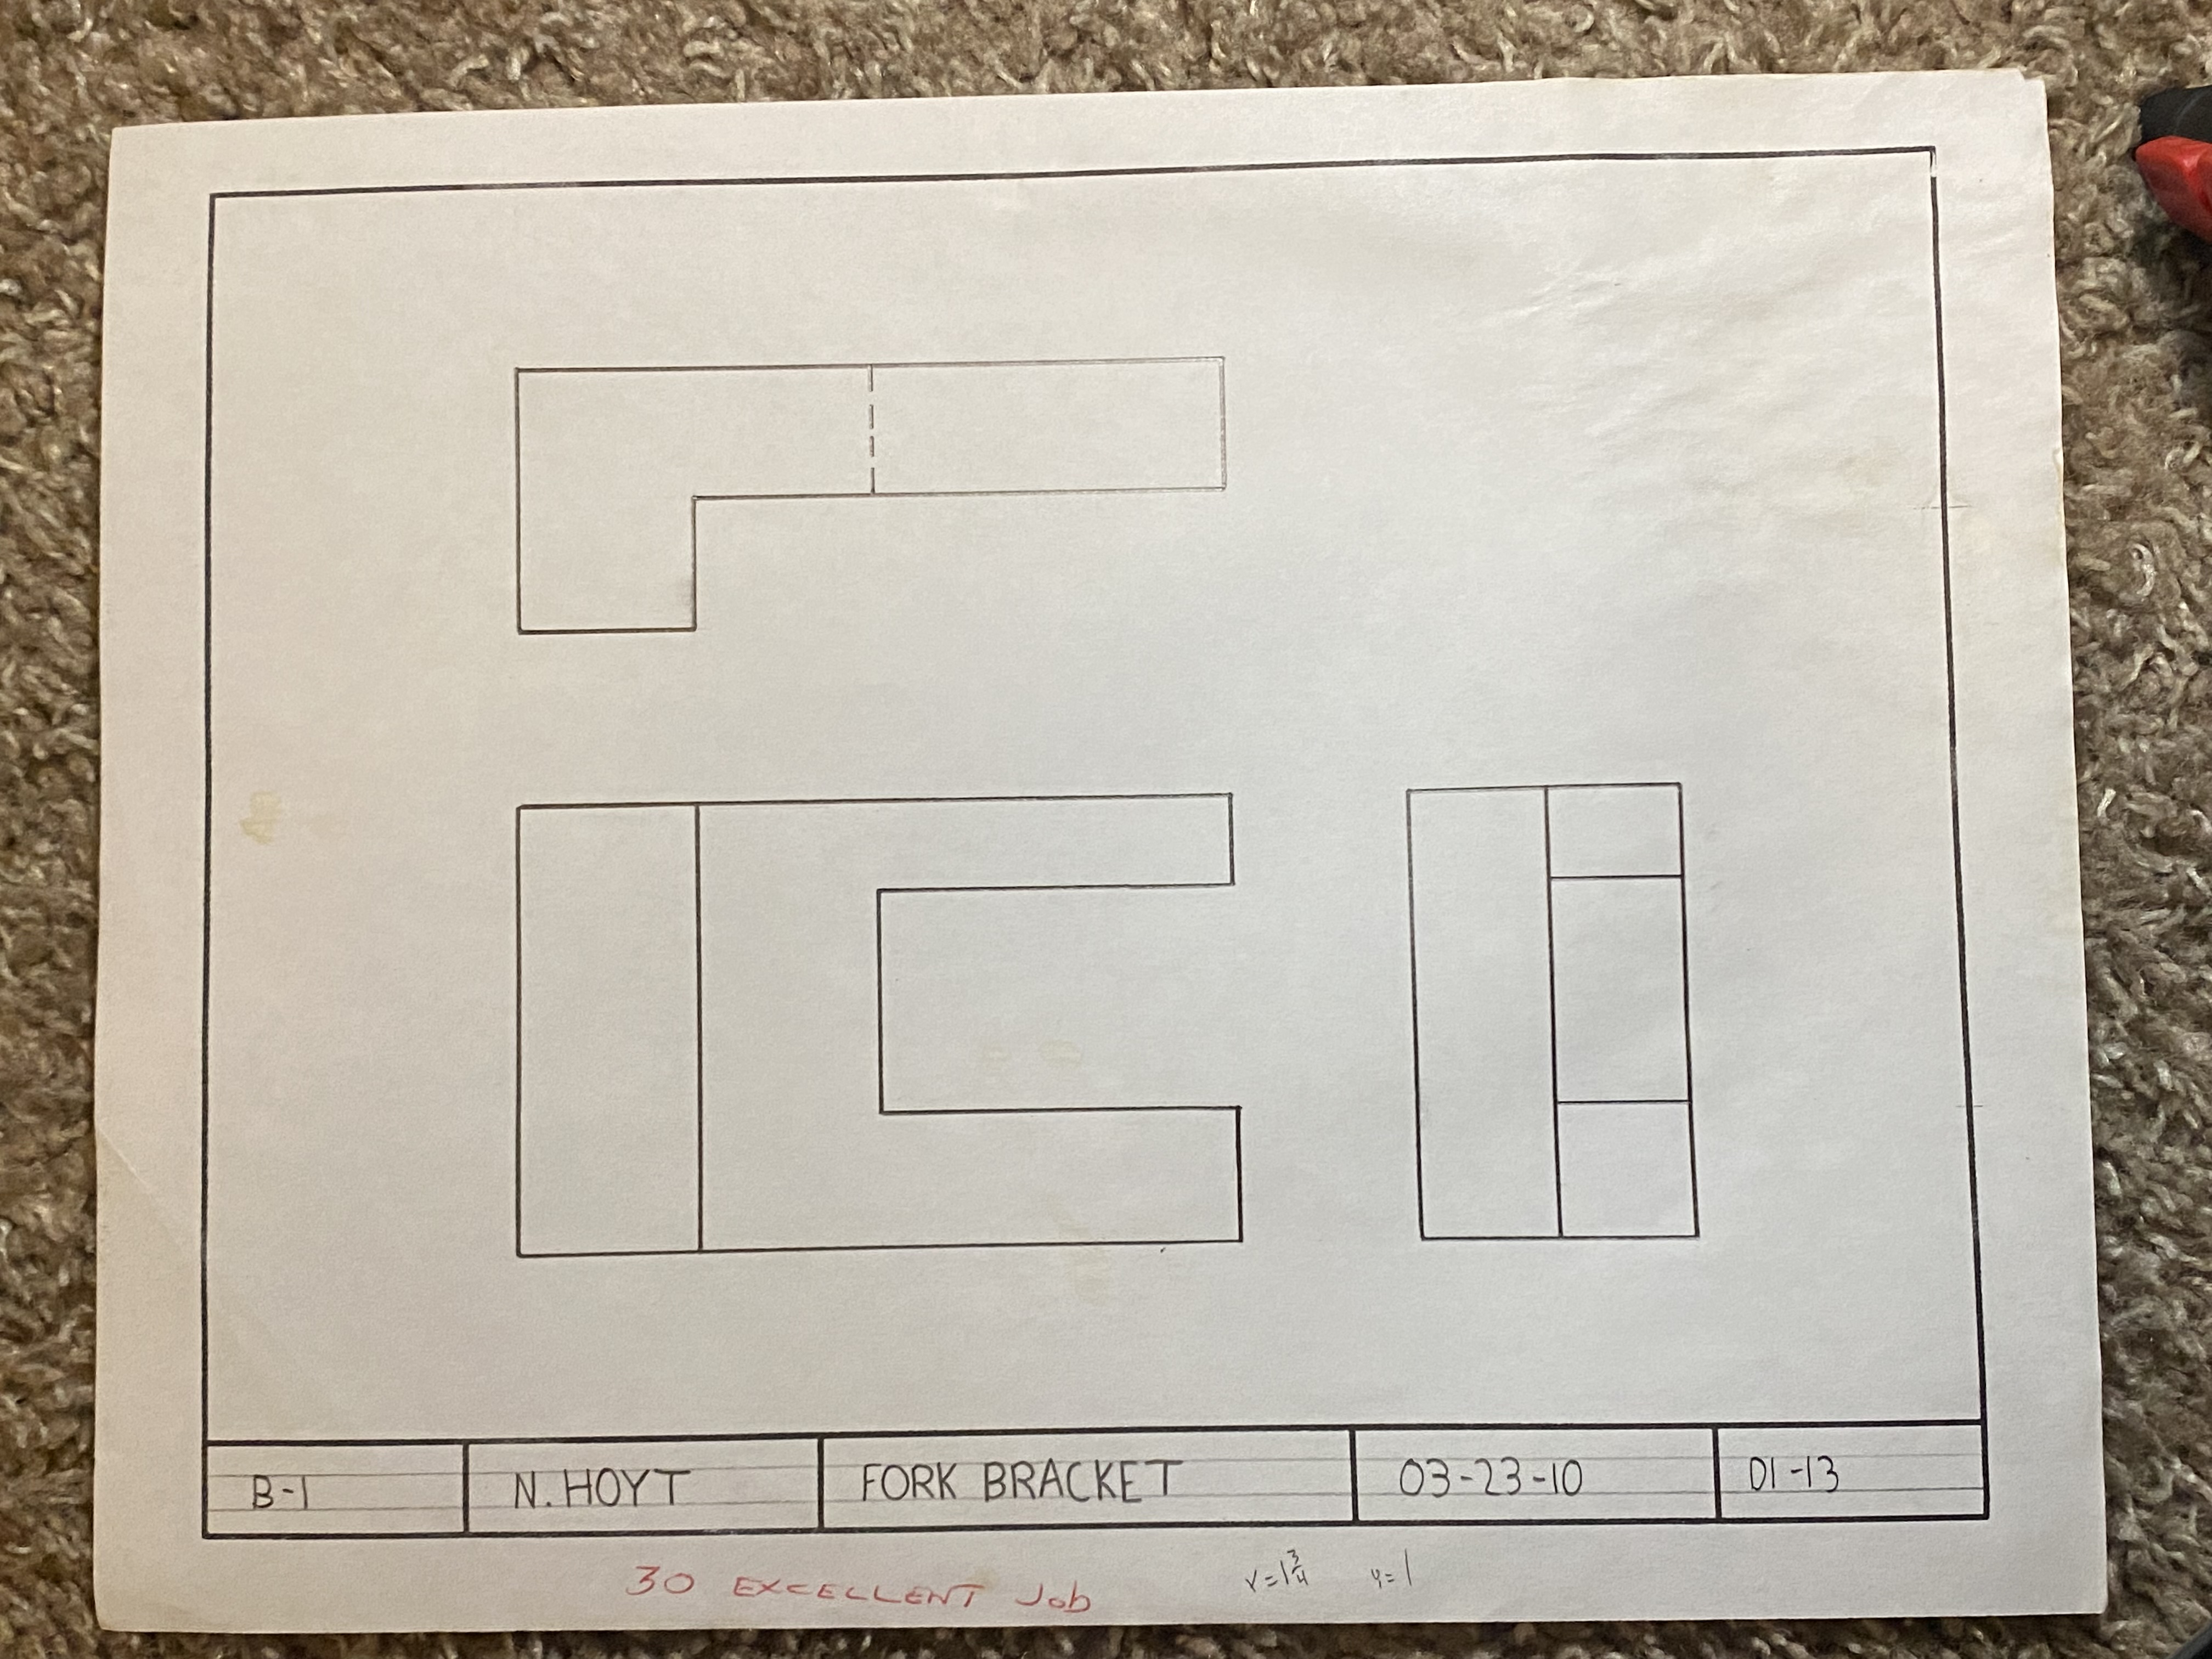 B-1 N. HOYT FORK BRACKET 03-23-10 01-13
30 EXCELLENT Job x=1 3/4 y=1